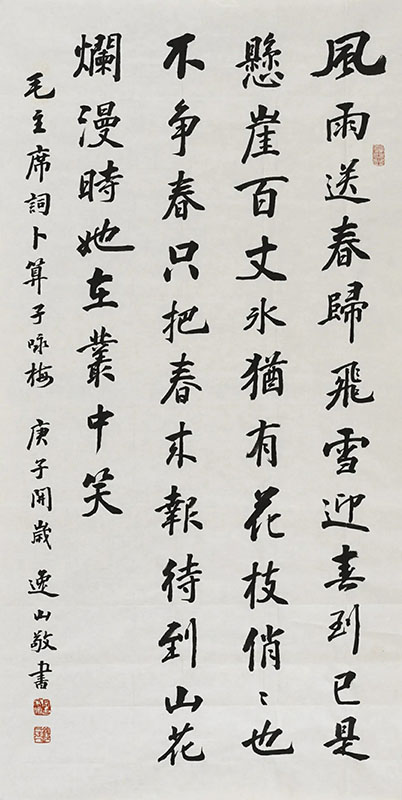 風雨送春歸飛雪迎喜到已是
懸崖百丈氷猶有花枝俏〻也
不争春只把春来報待到山花
爛漫時她在叢中笑
毛主席詞卜算子咏梅 庚子開歲 逸山敬書